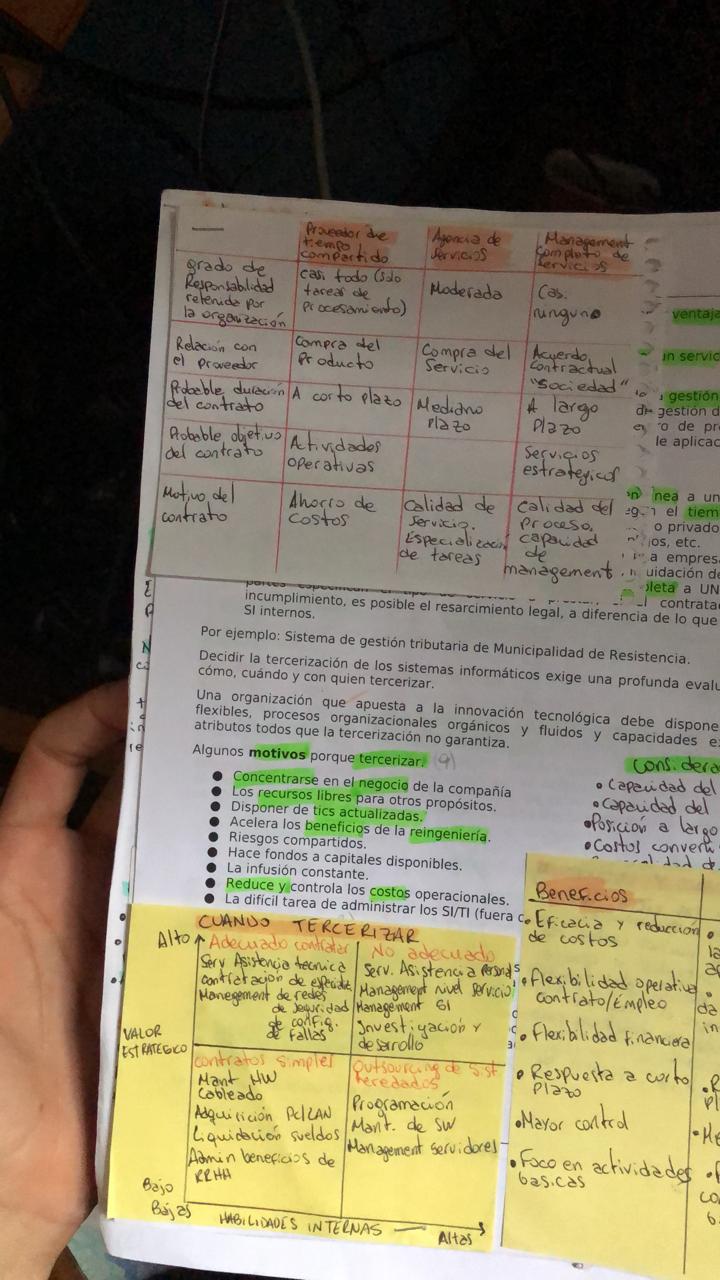 Proveedor de
tiempo
compartido
Agencia de
servicios
Management
completo de
servicios
grado de
Responsabilidad
retenida por
la organización
casi todo (solo
tareas de
procesamiento)
Moderada
Casi
ninguno
Relación con
el Proveedor
Compra del
Producto
Compra del
Servicio
Acuerdo
contractual
"Sociedad"
Probable duración
del contrato
A corto plazo
Mediano
Plazo
A largo
Plazo
Probable objetivo
del contrato
Actividades
operativas
Servicios
estratégicos
Motivo del
contrato
Ahorro de
costos
Calidad de
Servicio.
Especialización
de tareas
Calidad del
proceso,
capacidad
de
management
ventaja
un servic
gestión
gestión d
o de pr
le aplicac
nea a un
el tiem
o privado
jos, etc.
a empresa
uidación de
pleta a UN
contrata
incumplimiento, es posible el resarcimiento legal, a diferencia de lo que
SI internos.
Por ejemplo: Sistema de gestión tributaria de Municipalidad de Resistencia.
Decidir la tercerización de los sistemas informáticos exige una profunda evalu
cómo, cuándo y con quien tercerizar.
Una organización que apuesta a la innovación tecnológica debe dispone
flexibles, procesos organizacionales orgánicos y fluidos y capacidades e
atributos todos que la tercerización no garantiza.
Algunos motivos porque tercerizar. (9)
● Concentrarse en el negocio de la compañía
● Los recursos libres para otros propósitos.
● Disponer de tics actualizadas.
● Acelera los beneficios de la reingeniería.
● Riesgos compartidos.
● Hace fondos a capitales disponibles.
● La infusión constante.
● Reduce y controla los costos operacionales.
● La difícil tarea de administrar los SI/TI (fuera c
Considera
• Capacidad del
• Capacidad del
• Posición a largo
• Costos conver
CUANDO TERCERIZAR
Alto
Adecuado contratar
Serv Asistencia técnica
contratación de
Management de redes
de seguridad
de config.
de fallas
No adecuado
Serv. Asistencia
Management nivel servicio
Management SI
Investigación y
desarrollo
VALOR
ESTRATEGICO
Contratos simples
Mant HW
Cableado
Adquisición PC/LAN
Liquidación sueldos
Admin beneficios de
RRHH
Outsourcing de Sist
heredados
Programación
Mant. de SW
Management servidores
Bajo
Bajas
HABILIDADES INTERNAS
Altas
Beneficios
• Eficacia y reducción
de costos
• Flexibilidad operativa
contrato/Empleo
• Flexibilidad financiera
• Respuesta a corto
Plazo
• Mayor control
• Foco en actividades
basicas